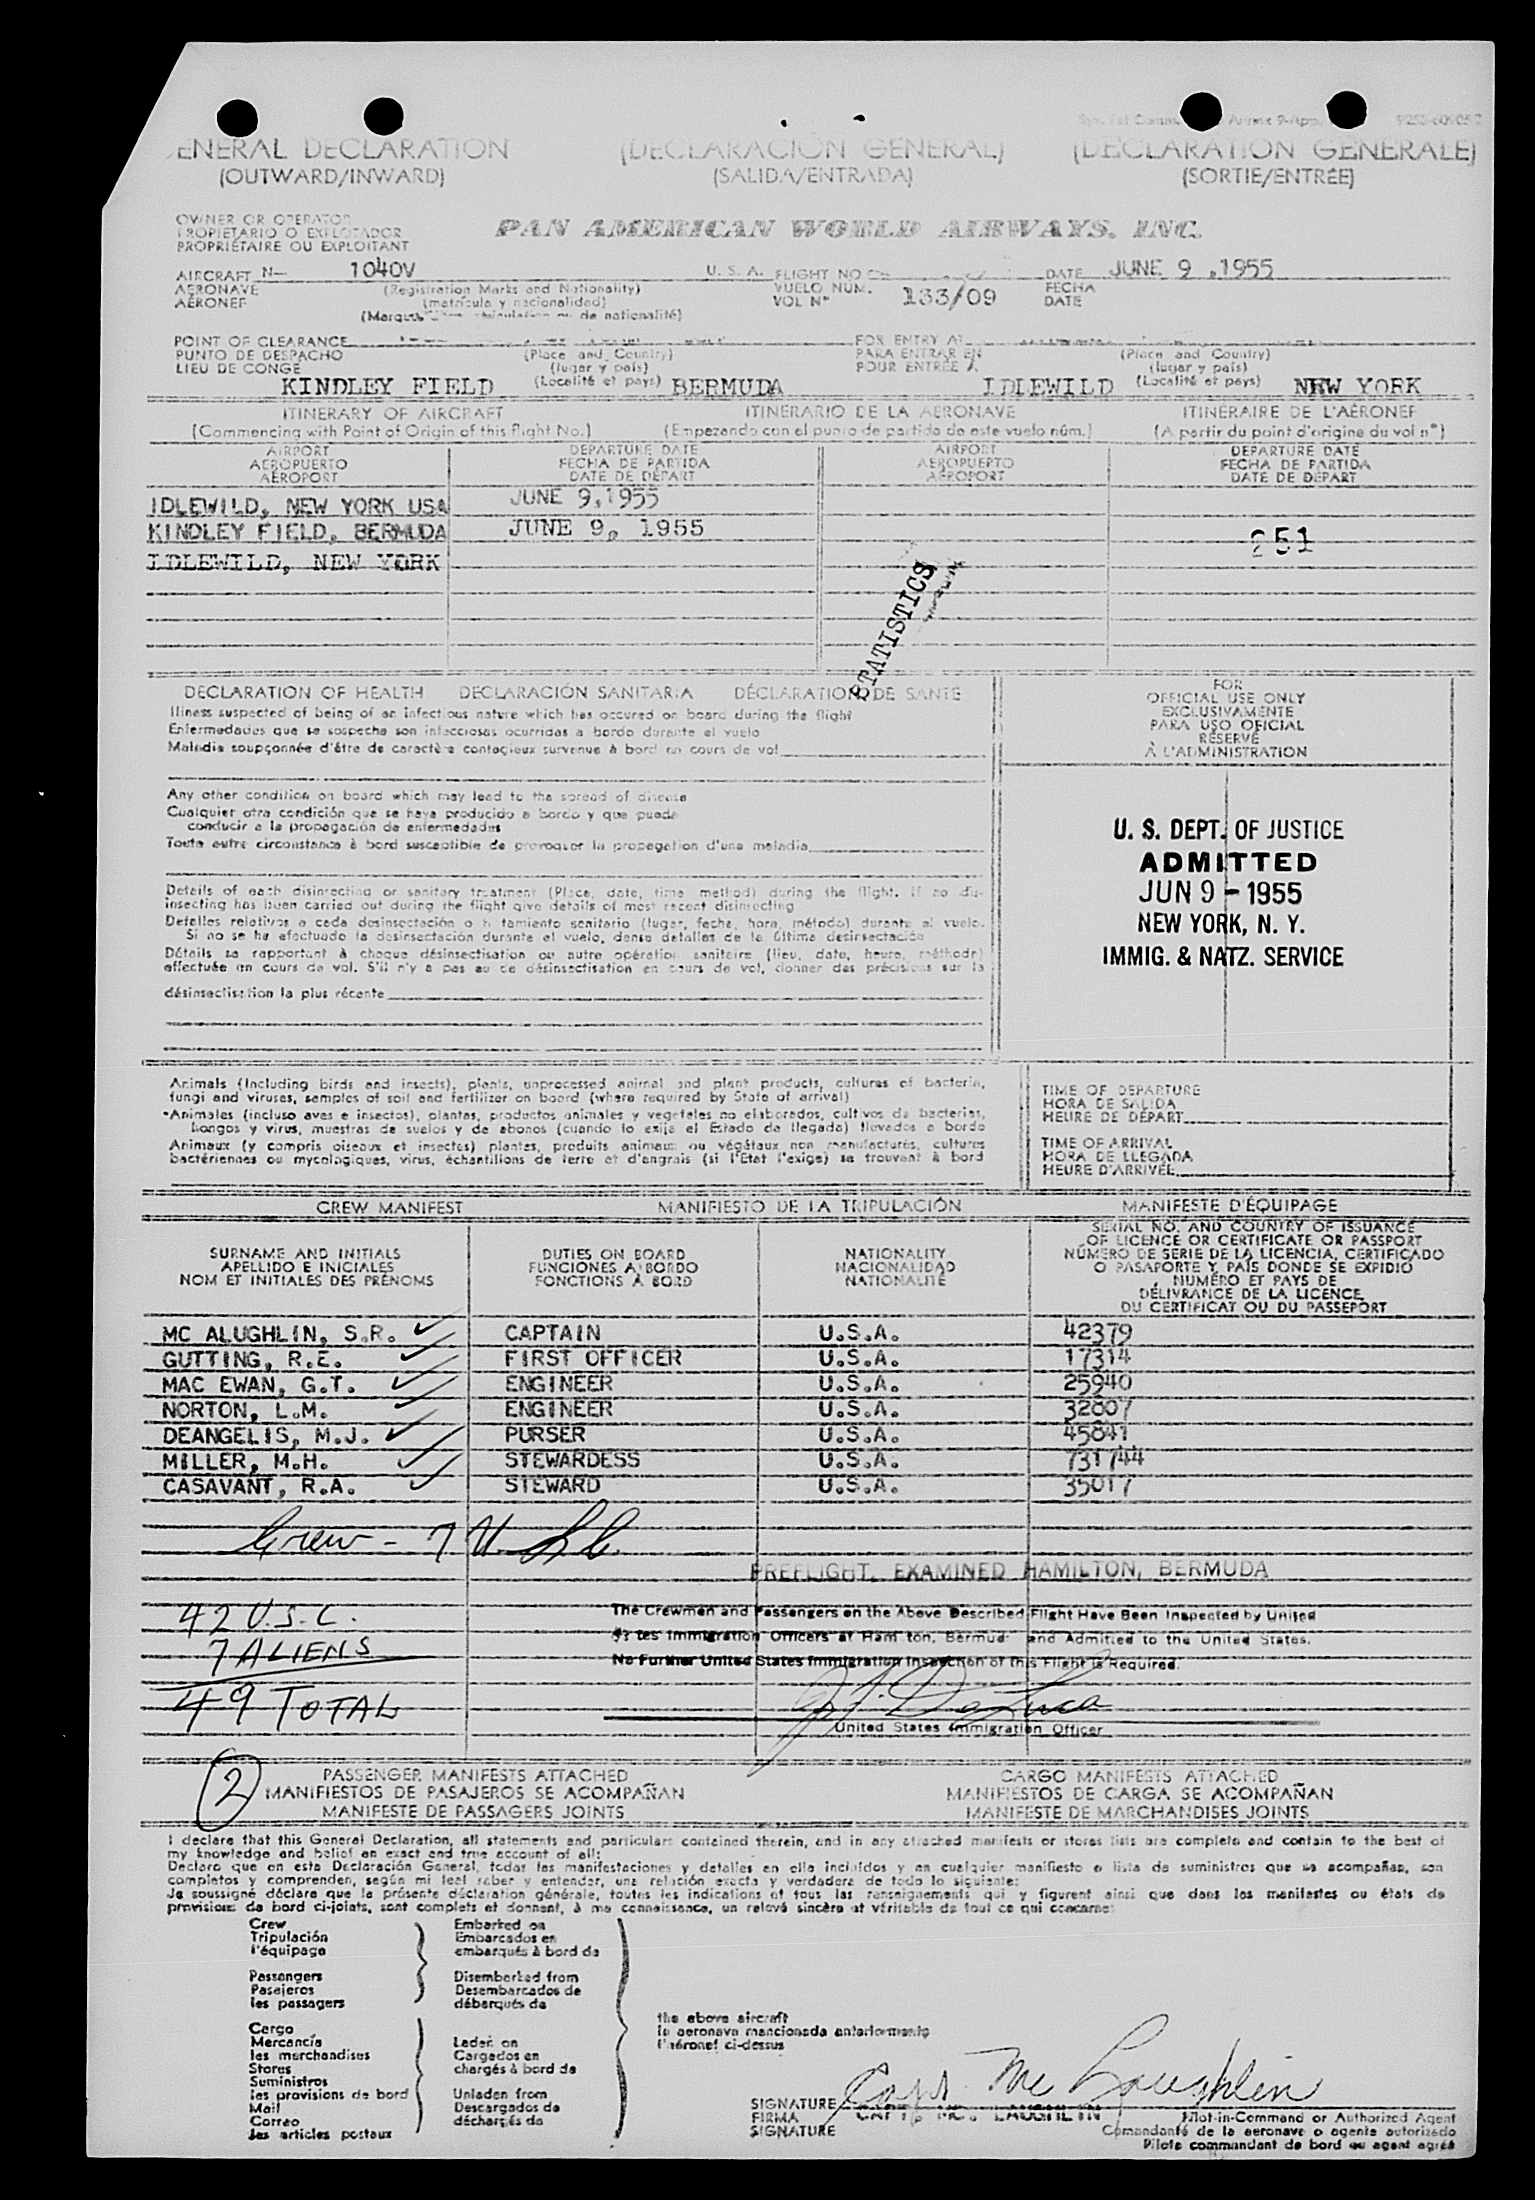 ENERAL DECLARATION (DECLARACIÓN GENERAL) (DECLARATION GENERALE)
(OUTWARD/INWARD) (SALIDA/ENTRADA) (SORTIE/ENTRÉE)
OWNER OR OPERATOR
PROPIETARIO O EXPLOTADOR
PROPRIÉTAIRE OU EXPLOITANT
PAN AMERICAN WORLD AIRWAYS, INC.
AIRCRAFT N— 1040V U. S. A. FLIGHT NO DATE JUNE 9 ,1955
AERONAVE (Registration Marks and Nationality) VUELO NUM. 133/09 FECHA
AÉRONEF (matrícula y nacionalidad) VOL N° DATE
(Marques de nationalité)
POINT OF CLEARANCE FOR ENTRY AT
PUNTO DE DESPACHO (Place and Country) PARA ENTRAR EN (Place and Country)
LIEU DE CONGÉ (lugar y país) POUR ENTRÉE À (lugar y país)
KINDLEY FIELD (Localité et pays) BERMUDA IDLEWILD (Localité et pays) NEW YORK
ITINERARY OF AIRCRAFT ITINERARIO DE LA AERONAVE ITINÉRAIRE DE L'AÉRONEF
(Commencing with Point of Origin of this Flight No.) (Empezando con el punto de partida de este vuelo núm.) (A partir du point d'origine du vol n°)
AIRPORT DEPARTURE DATE AIRPORT DEPARTURE DATE
AEROPUERTO FECHA DE PARTIDA AEROPUERTO FECHA DE PARTIDA
AÉROPORT DATE DE DÉPART AÉROPORT DATE DE DÉPART
IDLEWILD, NEW YORK USA JUNE 9,1955
KINDLEY FIELD, BERMUDA JUNE 9, 1955
251
IDLEWILD, NEW YORK
STATISTICS
DECLARATION OF HEALTH DECLARACIÓN SANITARIA DÉCLARATION DE SANTE
Illness suspected of being of an infectious nature which has occured on board during the flight
Enfermedades que se sospecha son infecciosas ocurridas a bordo durante el vuelo
Maladie soupçonnée d'être de caractère contagieux survenue à bord en cours de vol
FOR
OFFICIAL USE ONLY
EXCLUSIVAMENTE
PARA USO OFICIAL
RÉSERVÉ
À L'ADMINISTRATION
Any other condition on board which may lead to the spread of disease
Cualquier otra condición que se haya producido a bordo y que pueda
conducir a la propagación de enfermedades
Toute autre circonstance à bord susceptible de provoquer la propagation d'une maladie
Details of each disinsecting or sanitary treatment (Place, date, time method) during the flight. If no dis-
insecting has been carried out during the flight give details of most recent disinsecting
Detalles relativos a cada desinsectación o tratamiento sanitario (lugar, fecha, hora, método) durante el vuelo.
Si no se ha efectuado la desinsectación durante el vuelo, dense detalles de la última desinsectación
Détails se rapportant à chaque désinsectisation ou autre opération sanitaire (lieu, date, heure, méthode)
effectuée en cours de vol. S'il n'y a pas eu de désinsectisation en cours de vol, donner des précisions sur la
désinsectisation la plus récente
U. S. DEPT. OF JUSTICE
ADMITTED
JUN 9 - 1955
NEW YORK, N. Y.
IMMIG. & NATZ. SERVICE
Animals (Including birds and insects), plants, unprocessed animal and plant products, cultures of bacteria,
fungi and viruses, samples of soil and fertilizer on board (where required by State of arrival)
Animales (incluso aves e insectos), plantas, productos animales y vegetales no elaborados, cultivos de bacterias,
hongos y virus, muestras de suelos y de abonos (cuando lo exija el Estado de llegada) llevados a bordo
Animaux (y compris oiseaux et insectes) plantes, produits animaux ou végétaux non manufacturés, cultures
bactériennes ou mycologiques, virus, échantillons de terre et d'engrais (si l'État l'exige) se trouvant à bord
TIME OF DEPARTURE
HORA DE SALIDA
HEURE DE DÉPART
TIME OF ARRIVAL
HORA DE LLEGADA
HEURE D'ARRIVÉE
CREW MANIFEST MANIFIESTO DE LA TRIPULACIÓN MANIFESTE D'ÉQUIPAGE
SURNAME AND INITIALS
APELLIDO E INICIALES
NOM ET INITIALES DES PRÉNOMS
DUTIES ON BOARD
FUNCIONES A BORDO
FONCTIONS À BORD
NATIONALITY
NACIONALIDAD
NATIONALITÉ
SERIAL NO. AND COUNTRY OF ISSUANCE
OF LICENCE OR CERTIFICATE OR PASSPORT
NÚMERO DE SERIE DE LA LICENCIA, CERTIFICADO
O PASAPORTE Y PAÍS DONDE SE EXPIDIÓ
NUMÉRO ET PAYS DE
DÉLIVRANCE DE LA LICENCE
DU CERTIFICAT OU DU PASSEPORT
MC ALUGHLIN, S.R. CAPTAIN U.S.A. 42379
GUTTING, R.E. FIRST OFFICER U.S.A. 17314
MAC EWAN, G.T. ENGINEER U.S.A. 25940
NORTON, L.M. ENGINEER U.S.A. 32807
DEANGELIS, M.J. PURSER U.S.A. 45841
MILLER, M.H. STEWARDESS U.S.A. 731744
CASAVANT, R.A. STEWARD U.S.A. 35017
Crew - 7 U.S.C.
PREFLIGHT, EXAMINED HAMILTON, BERMUDA
42 U.S.C.
7 ALIENS
49 TOTAL
The Crewmen and Passengers on the Above Described Flight Have Been Inspected by United
States Immigration Officers at Hamilton, Bermuda and Admitted to the United States.
No Further United States Immigration Inspection of this Flight is Required.
United States Immigration Officer
2
PASSENGER MANIFESTS ATTACHED CARGO MANIFESTS ATTACHED
MANIFIESTOS DE PASAJEROS SE ACOMPAÑAN MANIFIESTOS DE CARGA SE ACOMPAÑAN
MANIFESTE DE PASSAGERS JOINTS MANIFESTE DE MARCHANDISES JOINTS
I declare that this General Declaration, all statements and particulars contained therein, and in any attached manifests or stores lists are complete and contain to the best of
my knowledge and belief an exact and true account of all:
Declaro que en esta Declaración General, todas las manifestaciones y detalles en ella incluídos y en cualquier manifiesto o lista de suministros que se acompañan, son
completos y comprenden, según mi leal saber y entender, una relación exacta y verdadera de todo lo siguiente:
Je soussigné déclare que la présente déclaration générale, toutes les indications et tous les renseignements qui y figurent ainsi que dans les manifestes ou états de
provisions de bord ci-joints, sont complets et donnent, à ma connaissance, un relevé sincère et véritable de tout ce qui concerne:
Crew Embarked on
Tripulación Embarcados en
l'équipage embarqués à bord de
Passengers Disembarked from
Pasajeros Desembarcados de
les passagers débarqués de
the above aircraft
la aeronave mencionada anteriormente
l'aéronef ci-dessus
Cargo
Mercancía Laden on
les marchandises Cargados en
Stores chargés à bord de
Suministros
les provisions de bord Unladen from
Mail Descargados de
Correo déchargés de
les articles postaux
Capt. Mc Loughlin
SIGNATURE
FIRMA CAPT. MC. LAUGHLIN Pilot-in-Command or Authorized Agent
SIGNATURE Comandante de la aeronave o agente autorizado
Pilote commandant de bord ou agent agréé